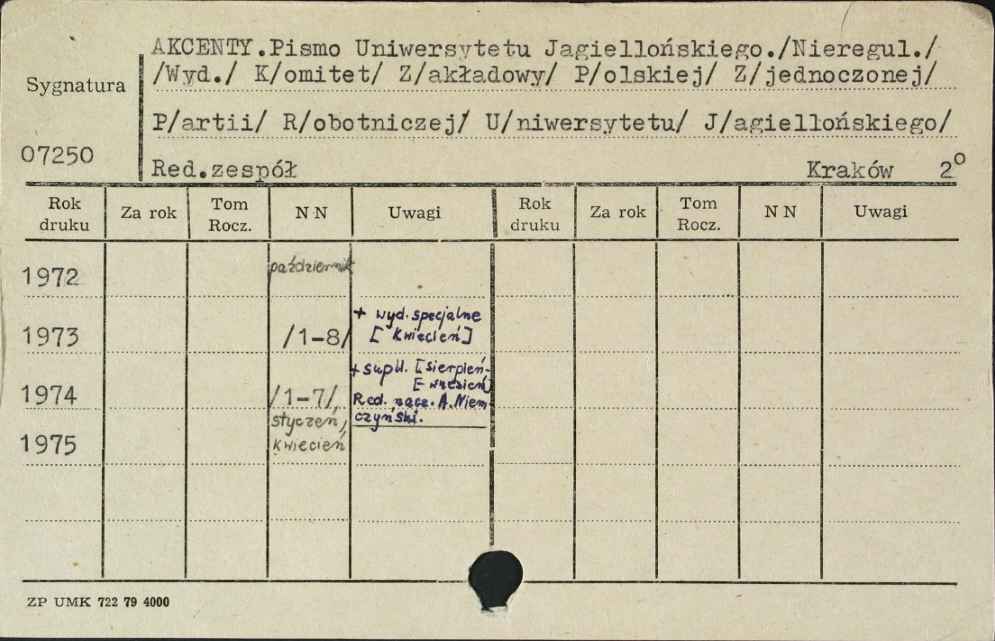 AKCENTY.Pismo Uniwersytetu Jagiellońskiego./Nieregul./
/Wyd./ K/omitet/ Z/akładowy/ P/olskiej/ Z/jednoczonej/
Sygnatura
P/artii/ R/obotniczej/ U/niwersytetu/ J/agiellońskiego/
07250
Red.zespół Kraków 2°
Rok druku Za rok Tom Rocz. N N Uwagi Rok druku Za rok Tom Rocz. N N Uwagi
1972 październik
1973 /1-8/ + wyd. specjalne
[kwiecień]
1974 /1-7/, + supl. [sierpień-
[-wrzesień]
Red. nacz. A. Niem
czyński.
1975 styczeń,
kwiecień
ZP UMK 722 79 4000